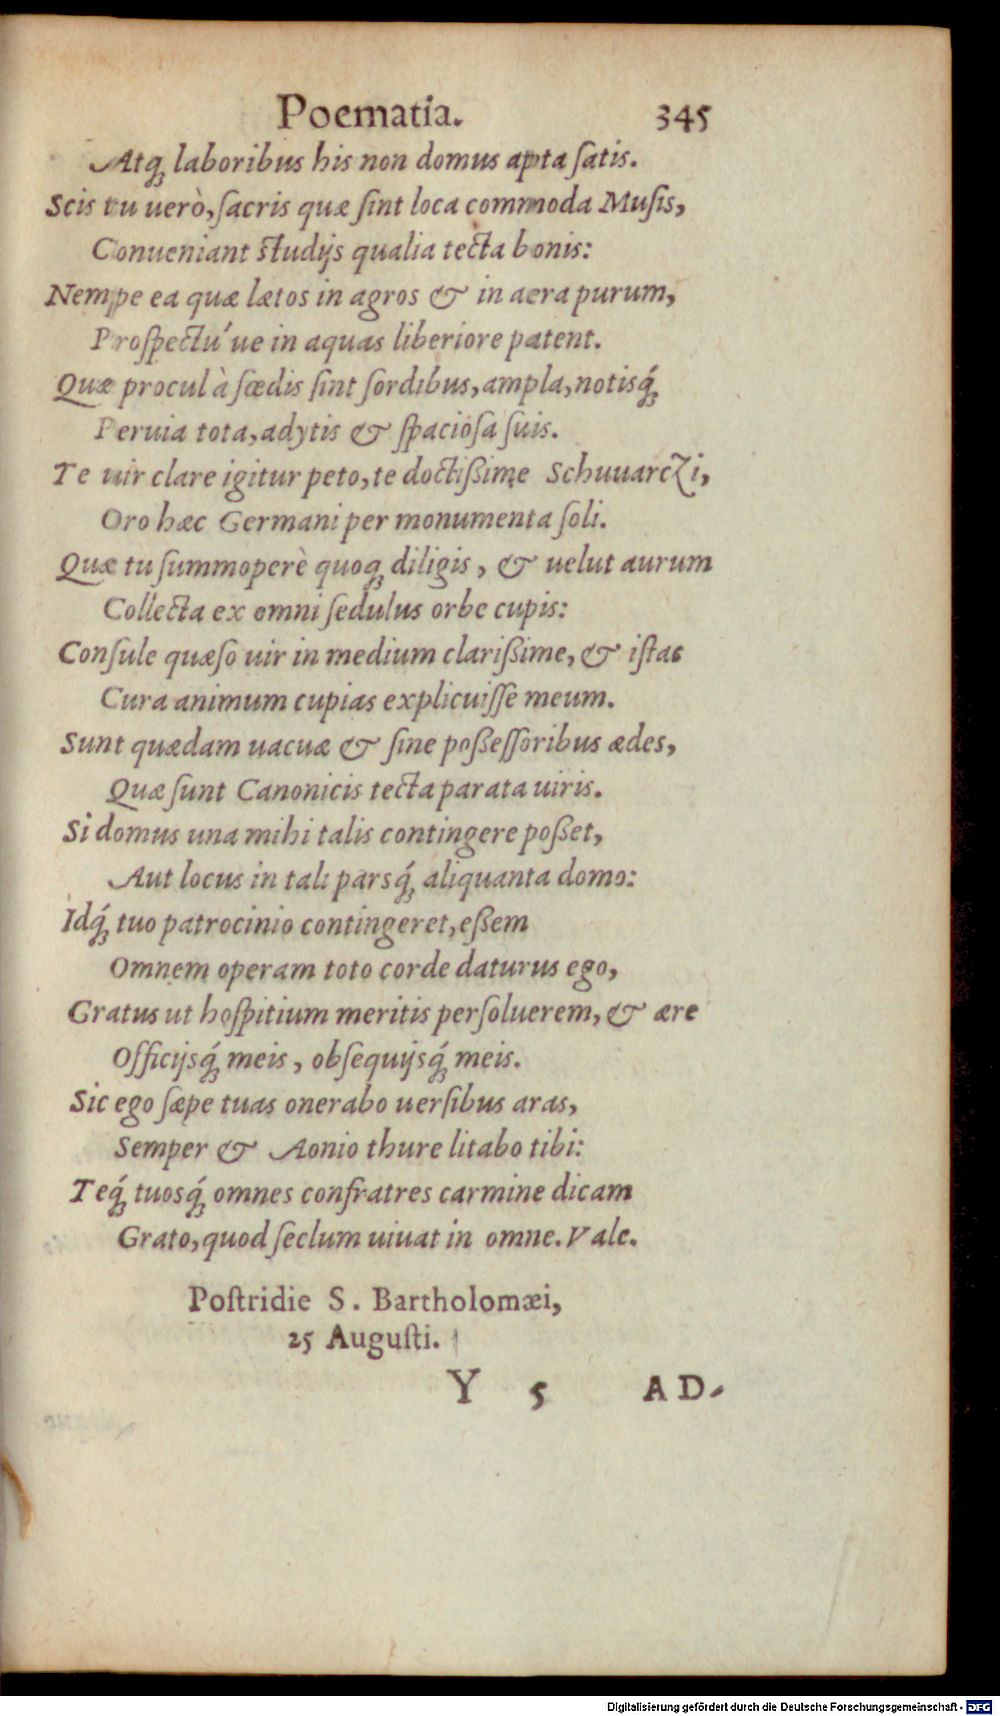 Poematia. 345
Atq́; laboribus his non domus apta ſatis.
Scis tu uerò, ſacris quæ ſint loca commoda Muſis,
Conueniant ſtudijs qualia tecta bonis:
Nempe ea quæ lætos in agros & in aera purum,
Proſpectu´ue in aquas liberiore patent.
Quæ procul à fœdis ſint ſordibus, ampla, notisq́;
Peruia tota, adytis & ſpacioſa ſuis.
Te uir clare igitur peto, te doctißime Schuuarczi,
Oro hæc Germani per monumenta ſoli.
Quæ tu ſummoperè quoq; diligis, & uelut aurum
Collecta ex omni ſedulus orbe cupis:
Conſule quæſo uir in medium clarißime, & iſtac
Cura animum cupias explicuiſſe meum.
Sunt quædam uacuæ & ſine poßeſſoribus ædes,
Quæ ſunt Canonicis tecta parata uiris.
Si domus una mihi talis contingere poßet,
Aut locus in tali parsq́; aliquanta domo:
Idq́; tuo patrocinio contingeret, eßem
Omnem operam toto corde daturus ego,
Gratus ut hoſpitium meritis perſoluerem, & ære
Officijsq́; meis, obſequijsq́; meis.
Sic ego ſæpe tuas onerabo uerſibus aras,
Semper & Aonio thure litabo tibi:
Teq́; tuosq́; omnes confratres carmine dicam
Grato, quod ſeclum uiuat in omne. Vale.
Poſtridie S. Bartholomæi,
25 Auguſti.
Y 5 AD-
Digitalisierung gefördert durch die Deutsche Forschungsgemeinschaft - DFG